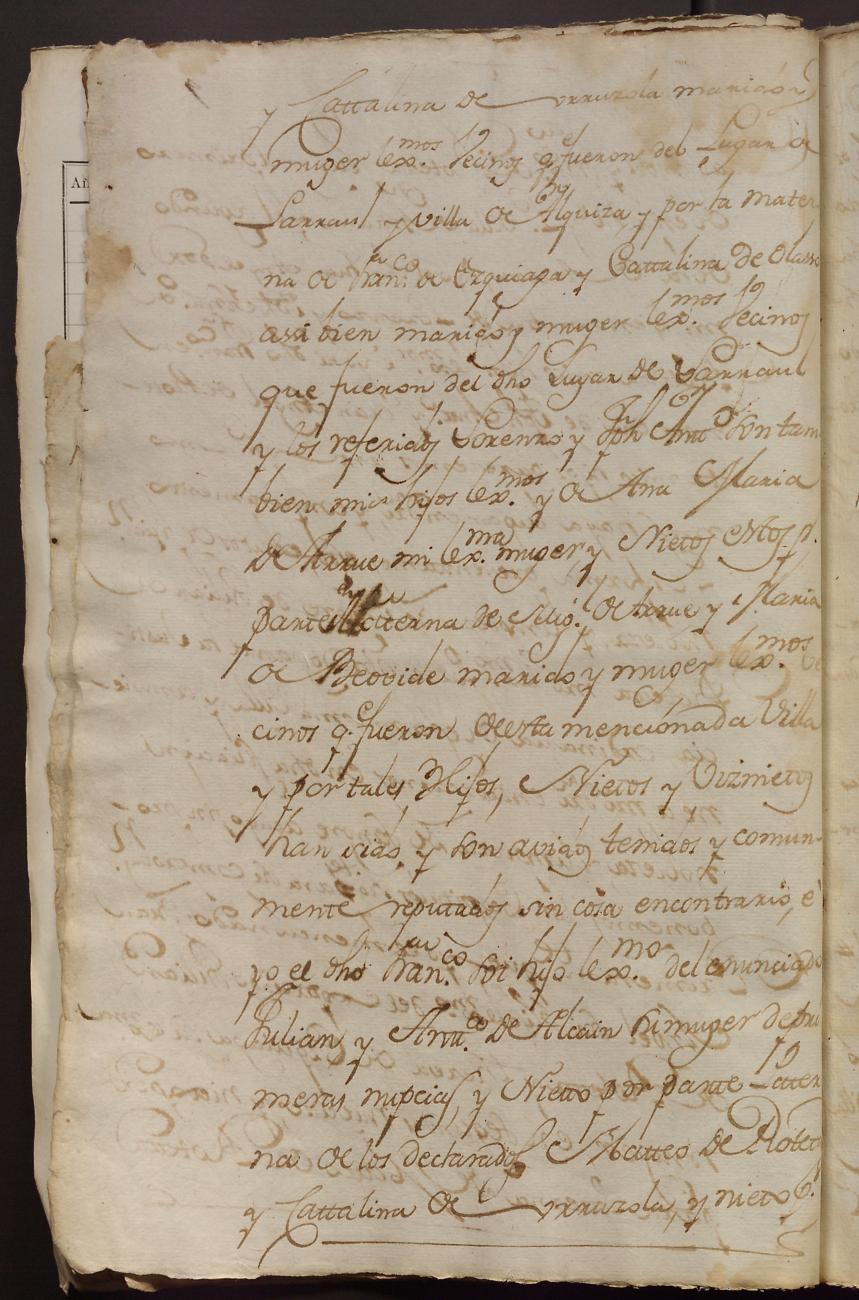 y Cattalina de Vrruzola marido y
muger lexmos Vecinos q.e fueron del Lugar de
Larraul y villa de Alquiza, y por la mater
na de Fran.co de Ezquiaga y Cattalina de Olass
assi bien marido y muger lex.mos Vecinos
que fueron del dho Lugar de Larraul
y los referidos Lorenzo y Jph Antt.o son tam
bien mis hijos lex.mos y de Ana Maria
de Arrue mi lex.ma muger y Nietos estos p.r
parte Materna de de Arrue y Maria
de Beovide marido y muger lex.mos Ve
cinos q.e fueron de esta mencionada Villa
y por tales Hijos, Nietos y Viznietos
han sido, y son avidos tenidos y comun-
mente reputados sin cosa encontrario, è
yo el dho Fran.co soi hijo lex.mo del enunciado
Julian y Antt.a de Alcain su muger de pri
meras nupcias, y Nieto por parte Pater
na de los declarados Matteo de Rotet
y Cattalina de Vrruzola, y nieto p.r
Añ